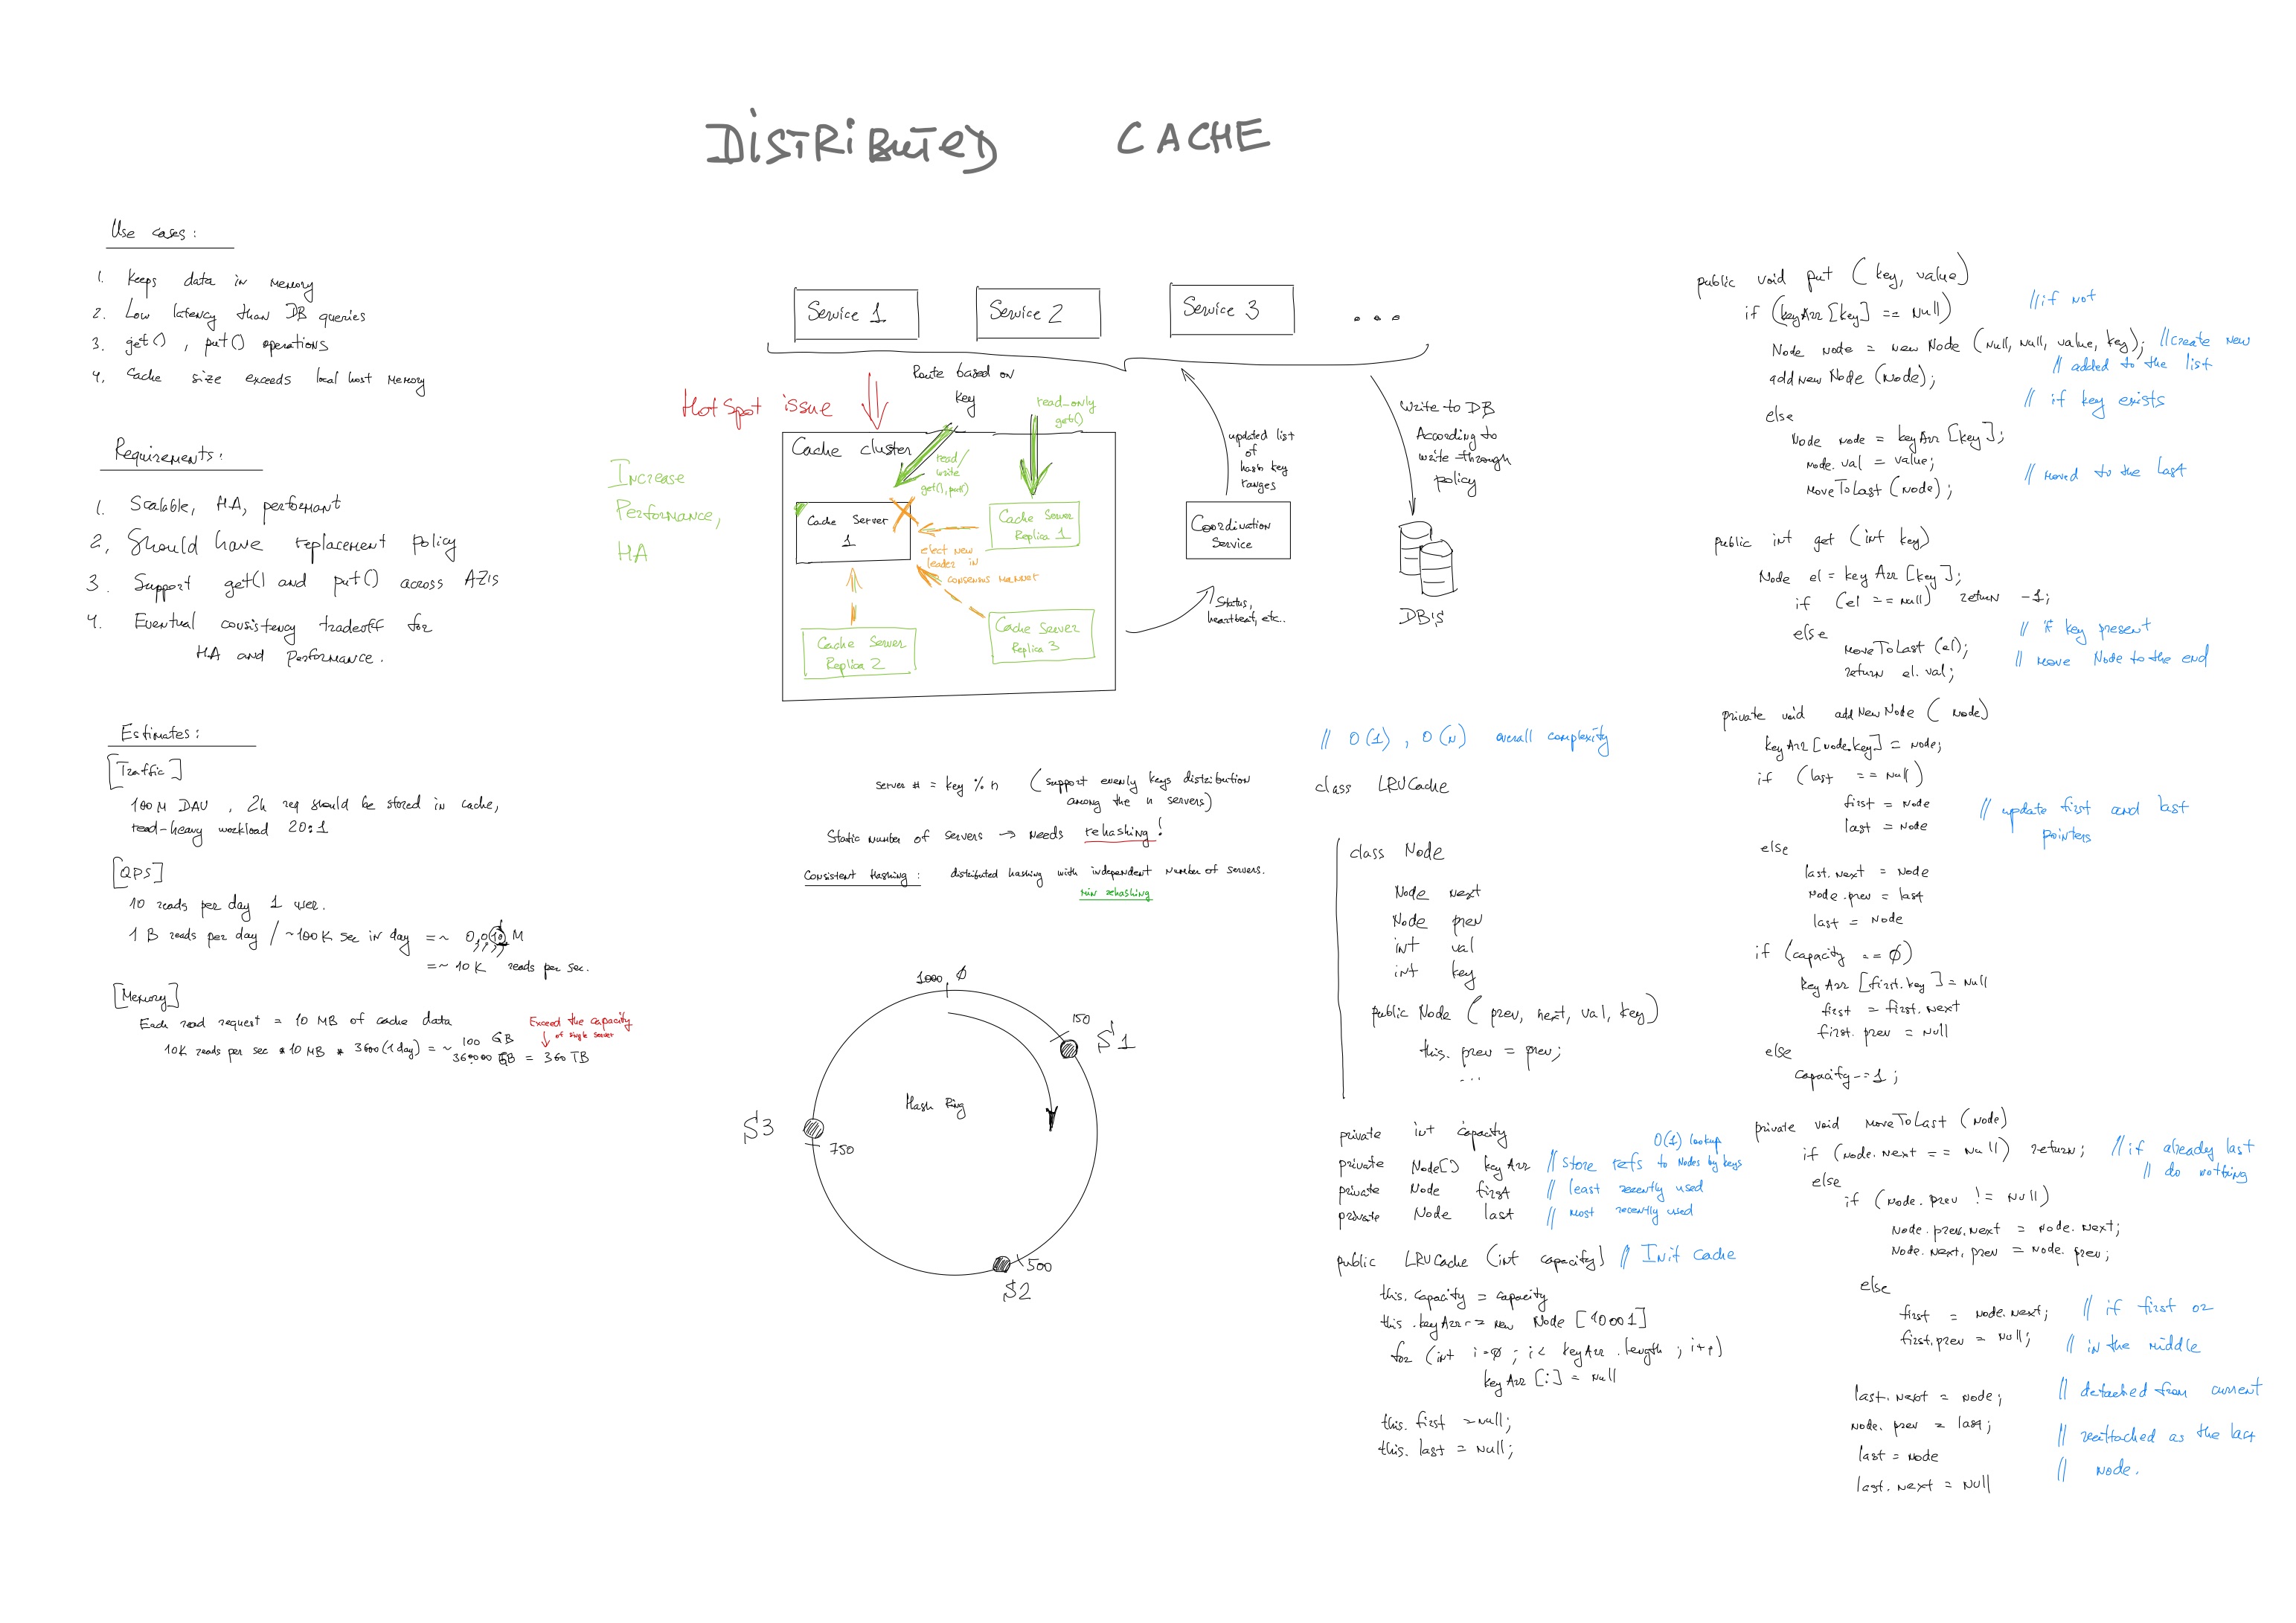 DISTRIBUTED CACHE
Use cases:
1. Keeps data in memory
2. Low latency than DB queries
3. get(), put() operations
4. Cache size exceeds local host memory
Requirements:
1. Scalable, HA, performant
2. Should have replacement policy
3. Support get() and put() across AZ's
4. Eventual consistency tradeoff for
HA and Performance.
Estimates:
[Traffic]
100M DAU, 2h req should be stored in cache,
read-heavy workload 20:1
[QPS]
10 reads per day 1 user.
1 B reads per day / ~100K sec in day =~ 0,010 M
=~ 10K reads per sec.
[Memory]
Each read request = 10 MB of cache data
10K reads per sec * 10 MB * 3600 (1 day) =~ 100 GB
360000 GB = 360 TB
Exceed the capacity
of single server
Service 1
Service 2
Service 3
...
HotSpot issue
Route based on
key
read-only
get()
Increase
Performance,
HA
Cache cluster
read/
write
get(), put()
Cache Server
1
Cache Server
Replica 1
elect new
leader in
consensus manner
Cache Server
Replica 2
Cache Server
Replica 3
updated list
of
hash key
ranges
Coordination
Service
Status,
heartbeat, etc..
Write to DB
According to
write-through
policy
DB's
server # = key % n (support evenly keys distribution
among the n servers)
Static number of servers → needs rehashing!
Consistent Hashing: distributed hashing with independent number of servers.
min rehashing
1000 0
150
S1
Hash Ring
S3
750
500
S2
// O(1), O(n) overall complexity
class LRUCache
class Node
Node next
Node prev
int val
int key
public Node (prev, next, val, key)
this.prev = prev;
...
private int capacity
O(1) lookup
private Node[] keyArr // store refs to Nodes by keys
private Node first // least recently used
private Node last // most recently used
public LRUCache (int capacity) // Init cache
this.capacity = capacity
this.keyArr = new Node [10001]
for (int i=0; i< keyArr.length; i++)
keyArr [i] = null
this.first = null;
this.last = null;
public void put (key, value)
if (keyArr[key] == null) //if not
Node node = new Node (null, null, value, key); //create new
addNewNode (node); // added to the list
else // if key exists
Node node = keyArr [key];
node.val = value;
moveToLast (node); // moved to the last
public int get (int key)
Node el = keyArr [key];
if (el == null) return -1;
else // if key present
moveToLast (el);
return el.val; // move Node to the end
private void addNewNode (node)
keyArr [node.key] = node;
if (last == null)
first = node
last = node // update first and last
pointers
else
last.next = node
node.prev = last
last = node
if (capacity == 0)
keyArr [first.key] = null
first = first.next
first.prev = null
else
capacity -= 1;
private void moveToLast (node)
if (node.next == null) return; //if already last
// do nothing
else
if (node.prev != null)
node.prev.next = node.next;
node.next.prev = node.prev;
else
first = node.next; // if first or
first.prev = null; // in the middle
last.next = node; // detached from current
node.prev = last;
// reattached as the last
last = node
// node.
last.next = null